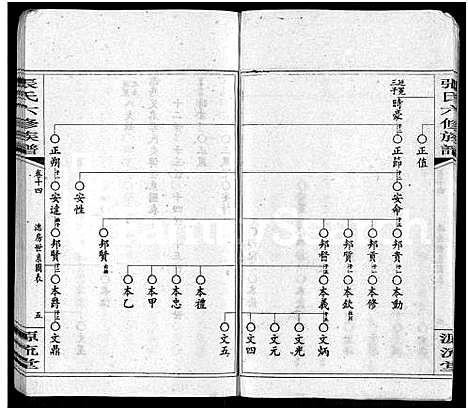 張氏六修族譜
源流堂
時蒙
正值
正節
正朔
安命
安性
安達
邦貢
邦貴
邦賢
邦督
邦賢
邦賢
本勳
本修
本欽
本義
本禮
本忠
本甲
本乙
本爵
文炳
文光
文元
文四
文五
文鼎
張氏六修族譜
卷十四
德房世系圖表
五
源流堂